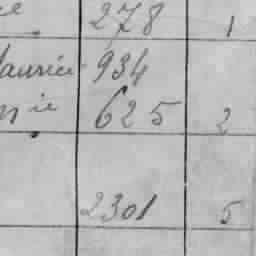 278 1
Maurice 934
nie 625 2
2301 5